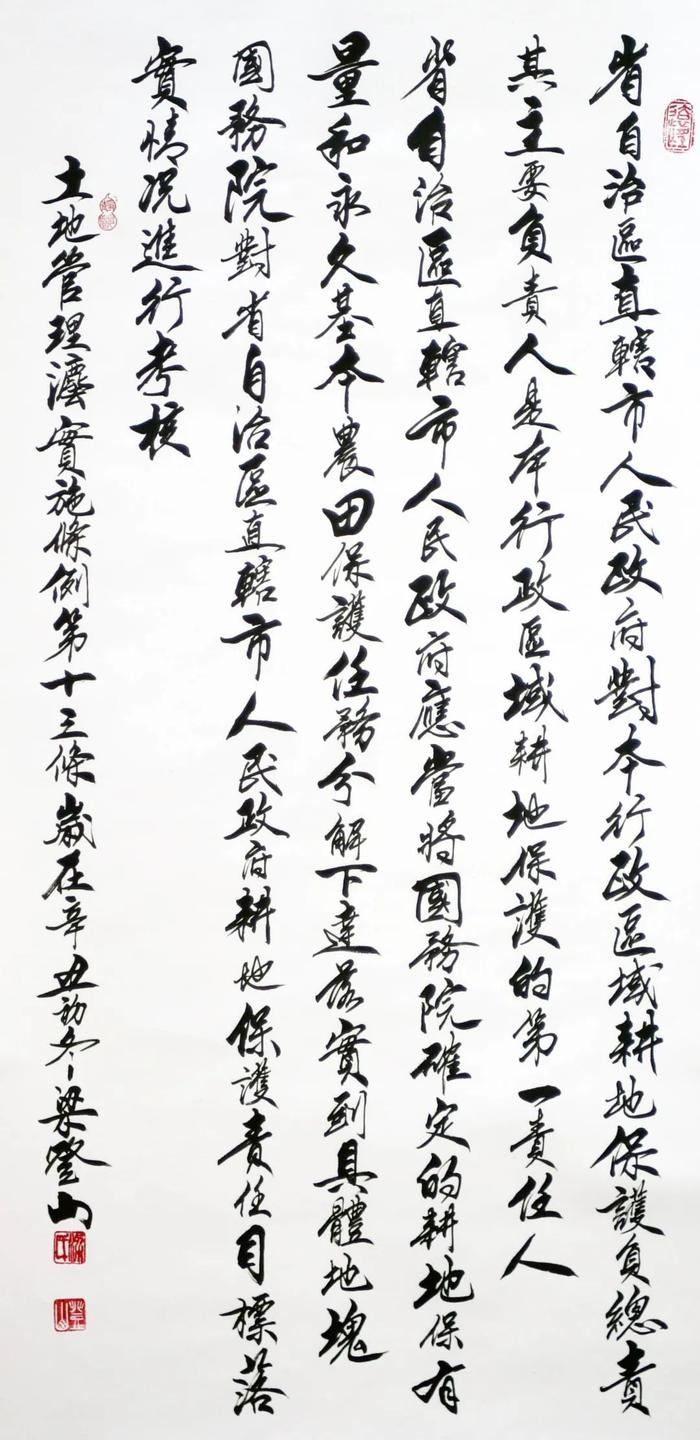 省自治區直轄市人民政府對本行政區域耕地保護負總責
其主要負責人是本行政區域耕地保護的第一責任人
省自治區直轄市人民政府應當將國務院確定的耕地保有
量和永久基本農田保護任務分解下達落實到具體地塊
國務院對省自治區直轄市人民政府耕地保護責任目標落
實情況進行考核
土地管理灋實施條例第十三條歲在辛丑初冬梁登山
梁氏
登山